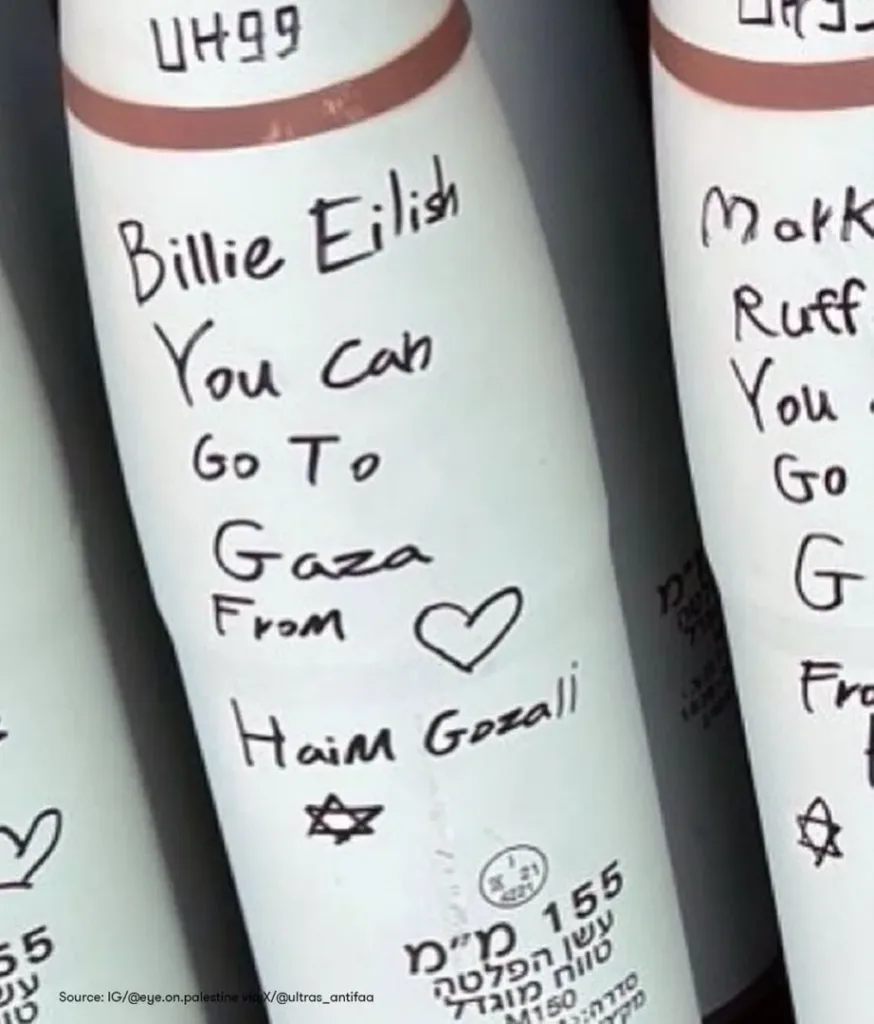 UH99
Billie Eilish
You Can
Go To
Gaza
From
Haim Gozali
155 מ"מ
עשן הפלטה
טווח מוגדל
M150
Mark
Ruff
You
Go
G
Fro
55
Source: IG/@eye.on.palestine via X/@ultras_antifaa